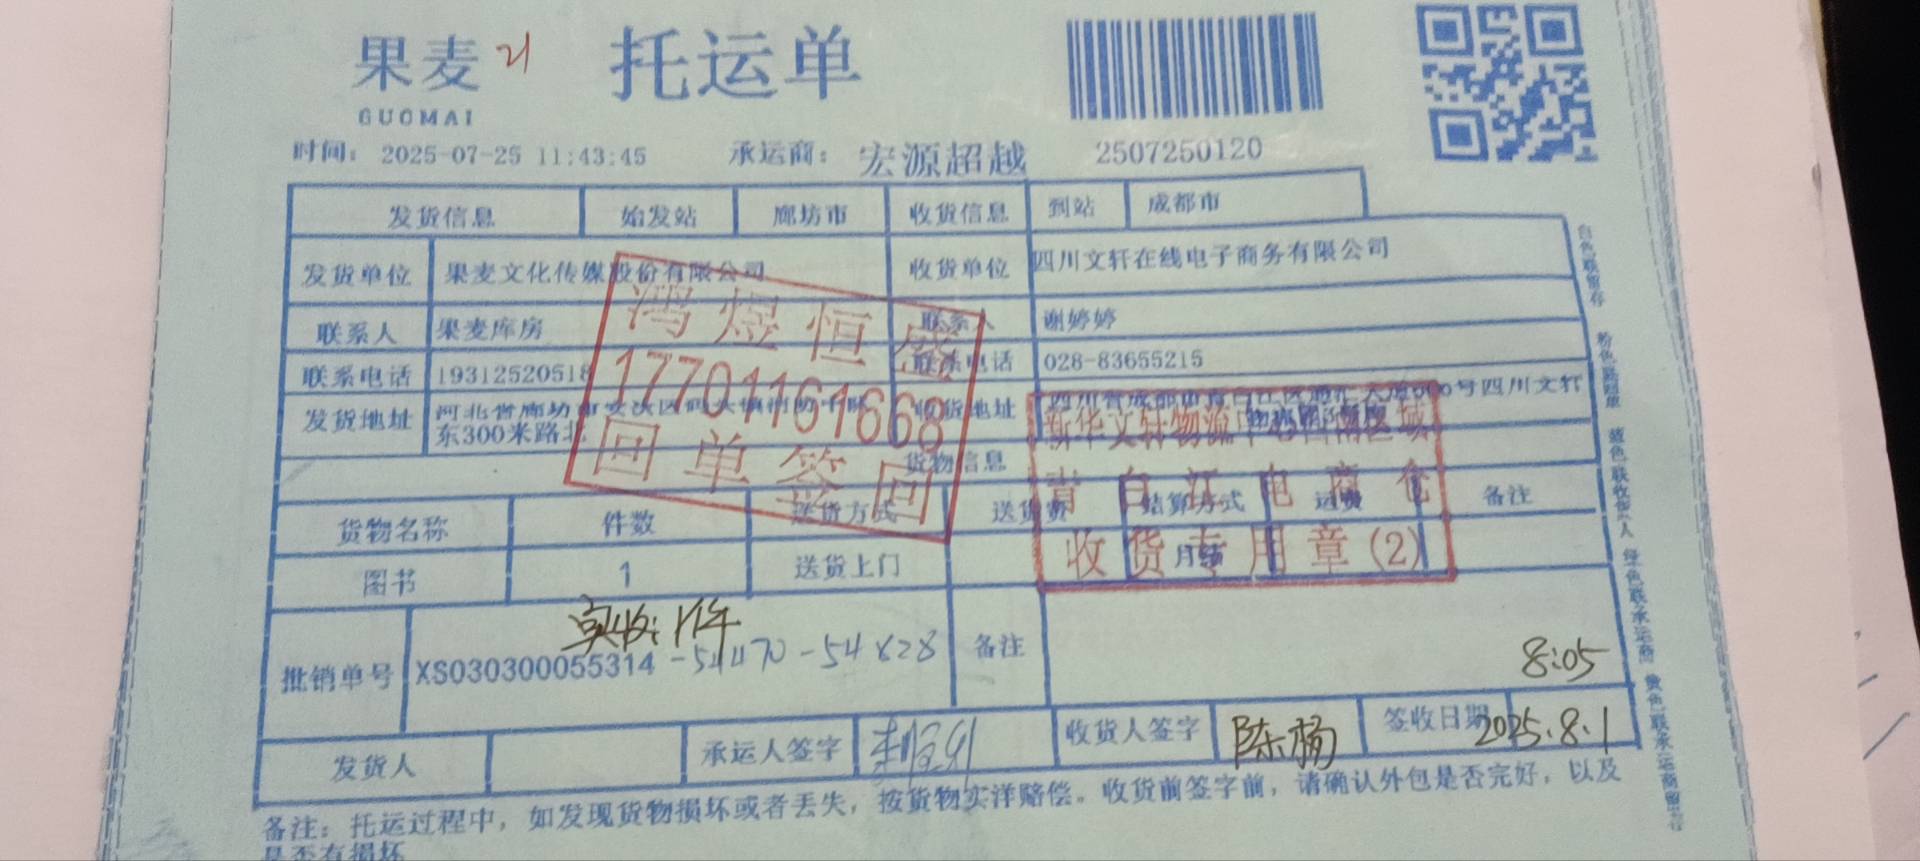 果麦 托运单
GUOMAI
时间： 2025-07-25 11:43:45 承运商： 宏源超越 2507250120
发货信息 始发站 廊坊市 收货信息 到站 成都市
发货单位 果麦文化传媒股份有限公司 收货单位 四川文轩在线电子商务有限公司
联系人 果麦库房 联系人 谢婷婷
联系电话 19312520518 联系电话 028-83655215
发货地址 河北省廊坊市安次区 收货地址 四川省成都市青白江区 号四川文轩
东300米路北
货物信息
货物名称 件数 送货方式 送货费 结算方式 运费 备注
图书 1 送货上门 月结
实收：1件
批销单号 XS030300055314 -54470 -54828 备注 8:05
发货人 承运人签字 收货人签字 陈杨 签收日期 2025.8.1
备注：托运过程中，如发现货物损坏或者丢失，按货物实洋赔偿。收货前签字前，请确认外包是否完好，以及
是否有损坏
鸿煜恒盛
17701161668
回单签回
新华文轩物流
青白江电商仓
收货专用章(2)
白色联留存 粉色联 蓝色联收货人 绿色联承运商 黄色联承运商留存